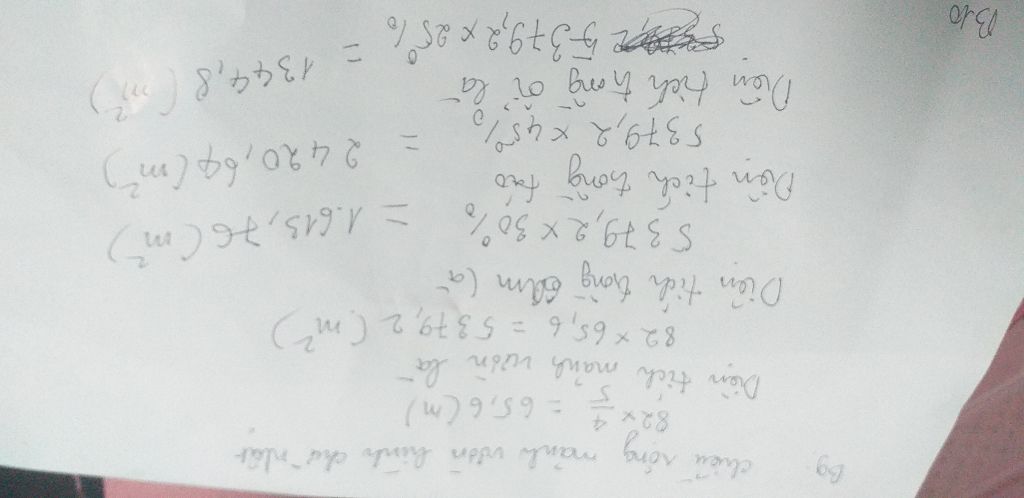 B10
Bg
chiều rộng mảnh vườn hình chữ nhật
82 x 4/5 = 65,6 (m)
Diện tích mảnh vườn là
82 x 65,6 = 5379,2 (m²)
Diện tích trồng cam là
5379,2 x 30% = 1.613,76 (m²)
Diện tích trồng táo
5379,2 x 45% = 2420,64 (m²)
Diện tích trồng ổi là
5379,2 x 25% = 1344,8 (m²)